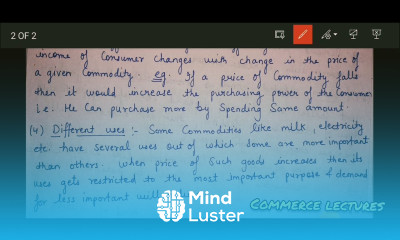 2 OF 2
income of Consumer changes with change in the price of
a given Commodity. eg. If a price of Commodity falls
then it would increase the purchasing power of the consumer
i.e; He Can purchase more by Spending Same amount.
(4) Different uses :- Some Commodities like milk, electricity
etc have several uses out of which some are more important
than others. when price of Such goods increases then its
uses gets restricted to the most important purpose & demand
for less important
Mind
Luster
COMMERCE LECTURES